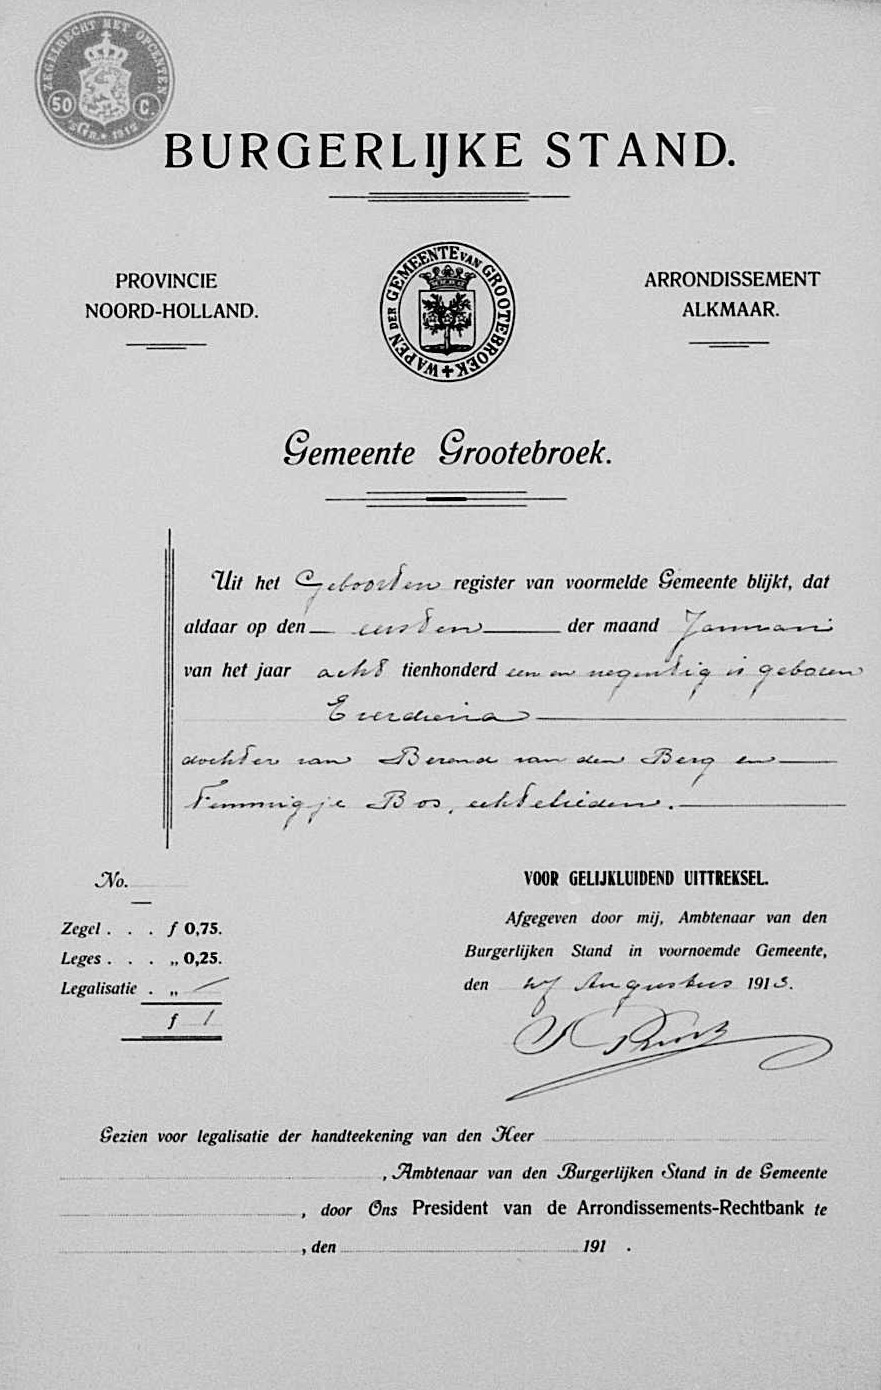 ZEGELRECHT MET OPCENTEN
50 C.
BURGERLIJKE STAND.
PROVINCIE
NOORD-HOLLAND.
WAPEN DER GEMEENTE VAN GROOTEBROEK
ARRONDISSEMENT
ALKMAAR.
Gemeente Grootebroek.
Uit het Geboorten register van voormelde Gemeente blijkt, dat
aldaar op den eersten der maand Januari
van het jaar acht tienhonderd een en negentig is geboren
Everdina
dochter van Berend van den Berg en
Femmigje Bos, echtelieden.
No.
Zegel . . . f 0,75.
Leges . . . „ 0,25.
Legalisatie . „ /
f 1
VOOR GELIJKLUIDEND UITTREKSEL.
Afgegeven door mij, Ambtenaar van den
Burgerlijken Stand in voornoemde Gemeente,
den Augustus 1913.
Gezien voor legalisatie der handteekening van den Heer
, Ambtenaar van den Burgerlijken Stand in de Gemeente
, door Ons President van de Arrondissements-Rechtbank te
, den 191 .